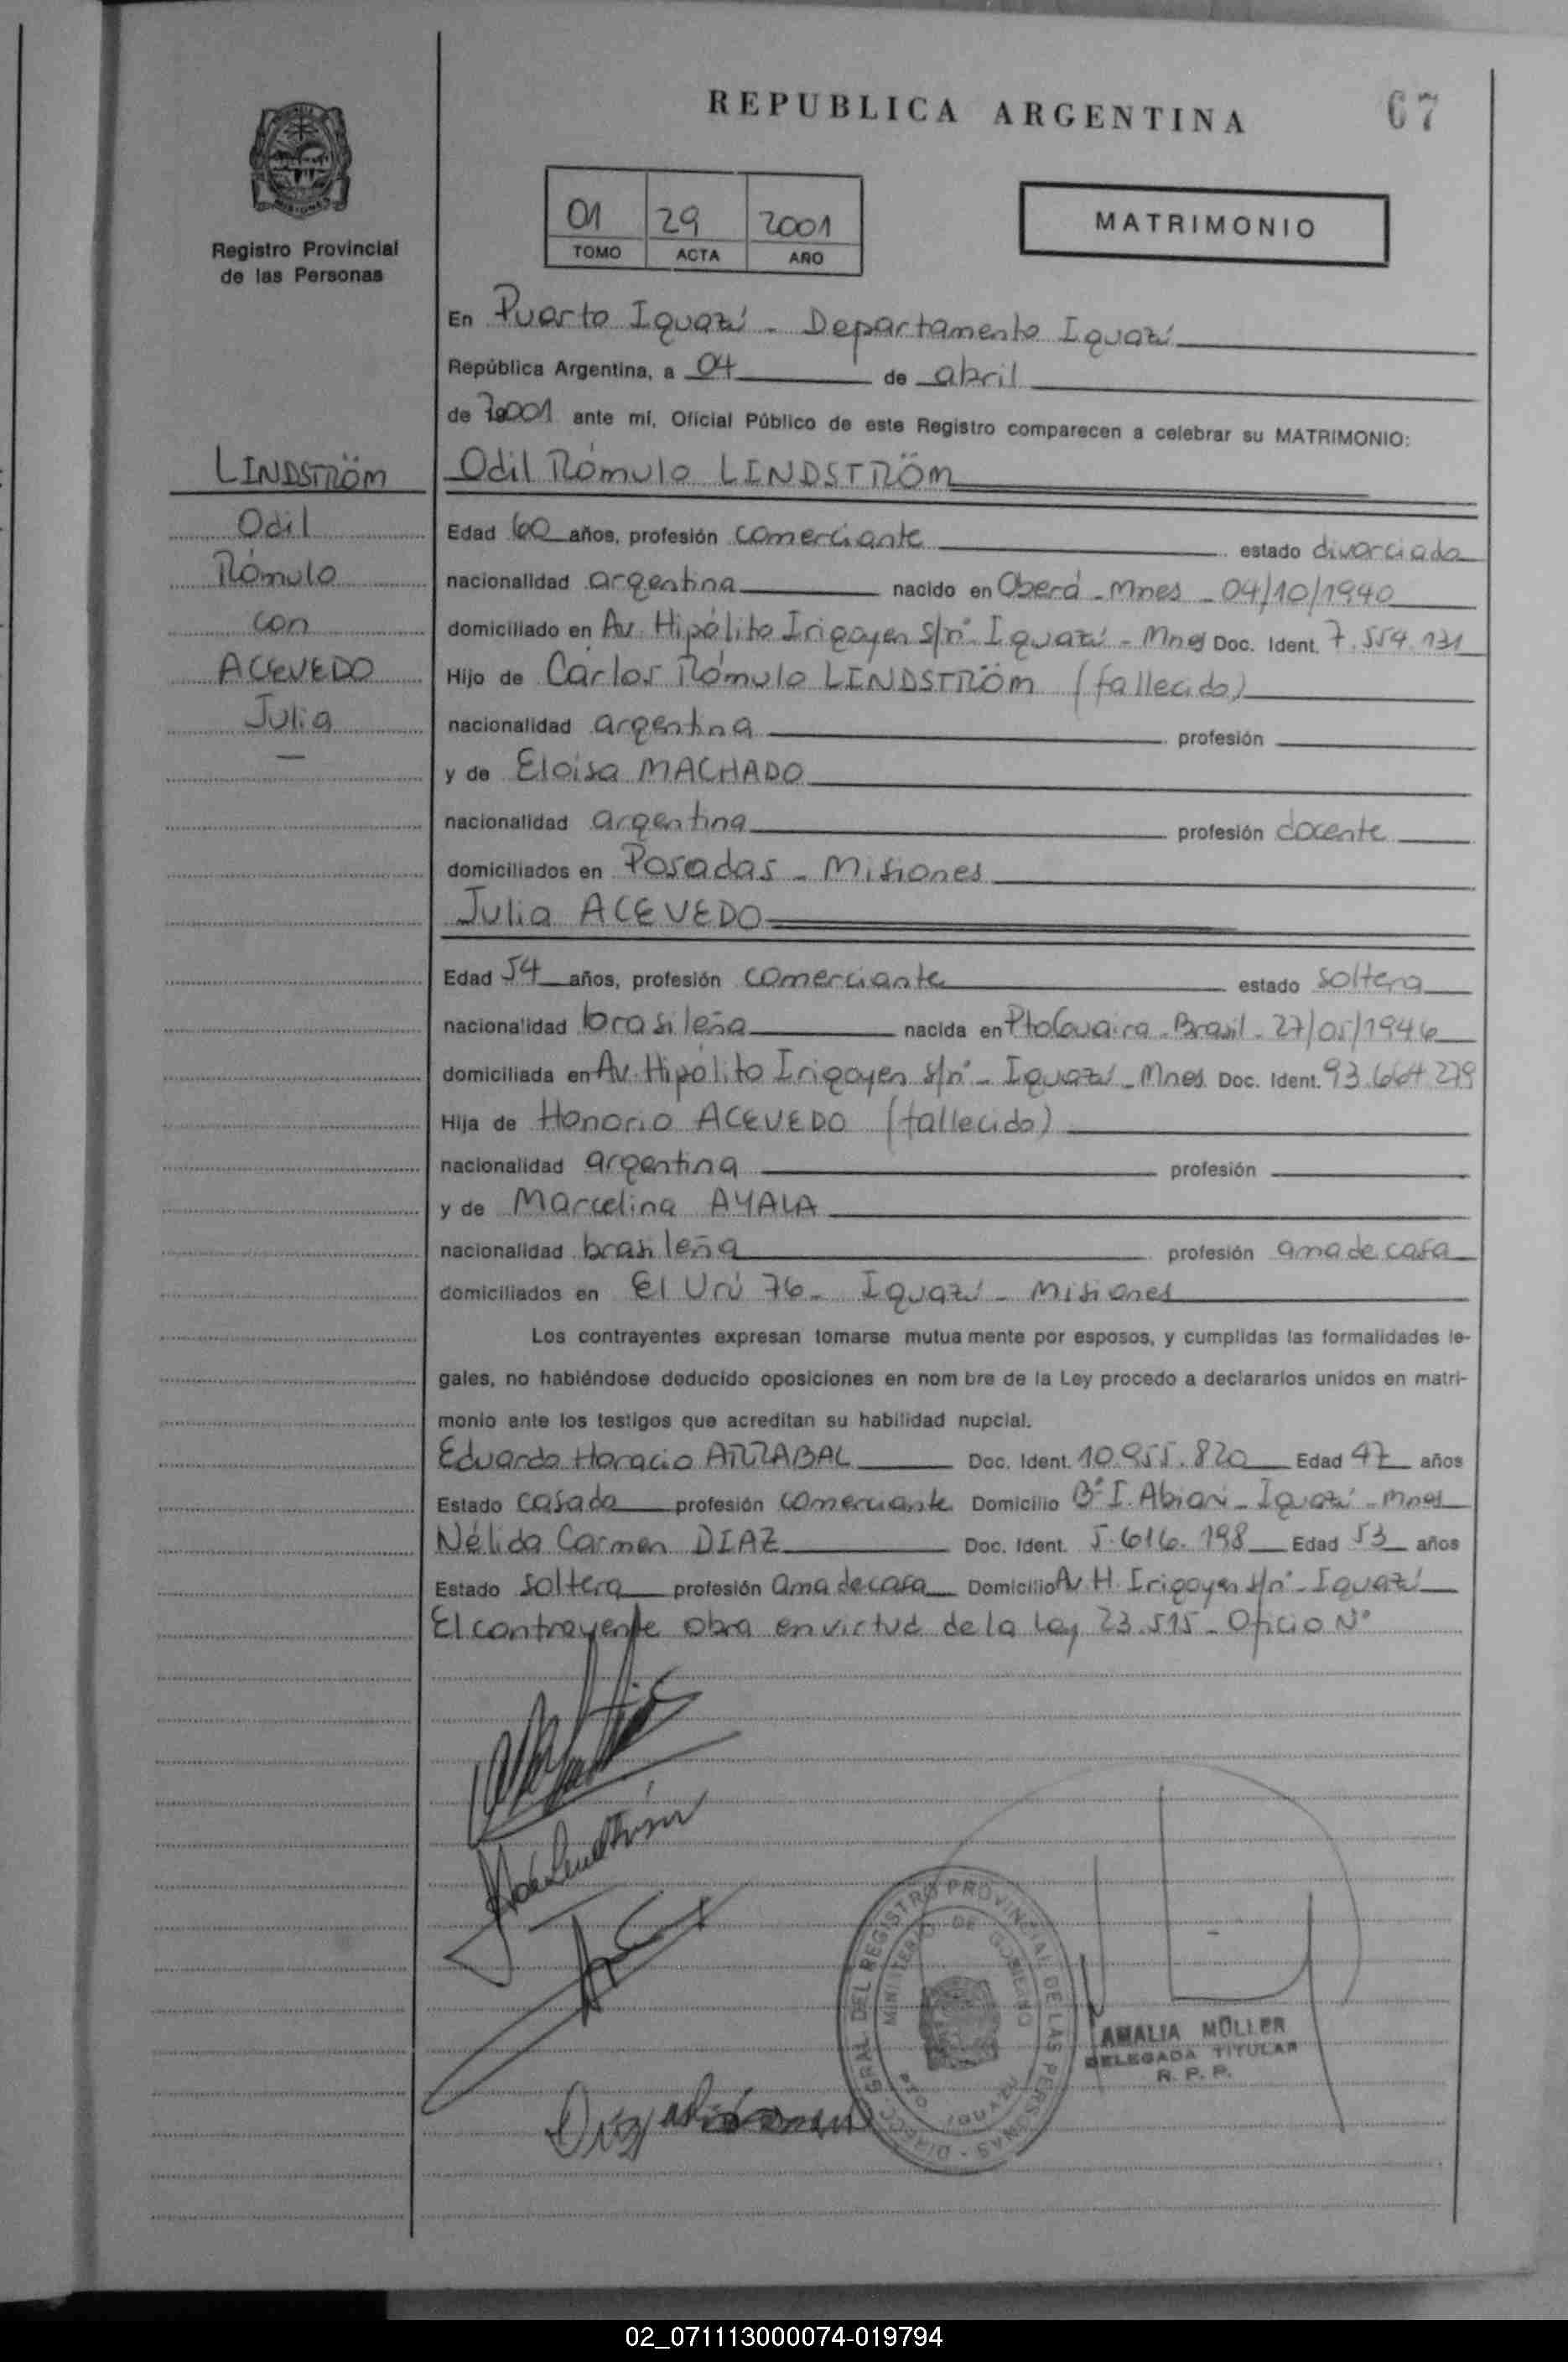 REPUBLICA ARGENTINA
67
Registro Provincial
de las Personas
01 29 2001
TOMO ACTA AÑO
MATRIMONIO
En Puerto Iguazú - Departamento Iguazú
República Argentina, a 04 de abril
de 2001 ante mí, Oficial Público de este Registro comparecen a celebrar su MATRIMONIO:
LINDSTRÖM
Odil
Rómulo
con
ACEVEDO
Julia
—
Odil Rómulo LINDSTRÖM
Edad 60 años, profesión comerciante estado divorciado
nacionalidad argentina nacido en Oberá - Mnes - 04/10/1940
domiciliado en Av. Hipólito Irigoyen s/nº - Iguazú - Mnes Doc. Ident. 7.554.131
Hijo de Carlos Rómulo LINDSTRÖM (fallecido)
nacionalidad argentina profesión
y de Eloisa MACHADO
nacionalidad argentina profesión docente
domiciliados en Posadas - Misiones
Julia ACEVEDO
Edad 54 años, profesión comerciante estado soltera
nacionalidad brasileña nacida en Pto Guaira - Brasil - 27/05/1946
domiciliada en Av. Hipólito Irigoyen s/nº - Iguazú - Mnes Doc. Ident. 93.664.279
Hija de Honorio ACEVEDO (fallecido)
nacionalidad argentina profesión
y de Marcelina AYALA
nacionalidad brasileña profesión ama de casa
domiciliados en El Urú 76 - Iguazú - Misiones
Los contrayentes expresan tomarse mutua mente por esposos, y cumplidas las formalidades le-
gales, no habiéndose deducido oposiciones en nom bre de la Ley procedo a declararlos unidos en matri-
monio ante los testigos que acreditan su habilidad nupcial.
Eduardo Horacio ARRABAL Doc. Ident. 10.955.820 Edad 47 años
Estado casado profesión comerciante Domicilio Bº I. Abiari - Iguazú - Mnes
Nélida Carmen DIAZ Doc. Ident. 5.616.198 Edad 53 años
Estado soltera profesión ama de casa Domicilio Av H. Irigoyen s/nº - Iguazú
El contrayente obra en virtud de la Ley 23.515 - Oficio Nº
DIRECC. GRAL. DEL REGISTRO PROVINCIAL DE LAS PERSONAS
MINISTERIO DE GOBIERNO
PTO. IGUAZU
AMALIA MÜLLER
DELEGADA TITULAR
R. P. P.
02_071113000074-019794